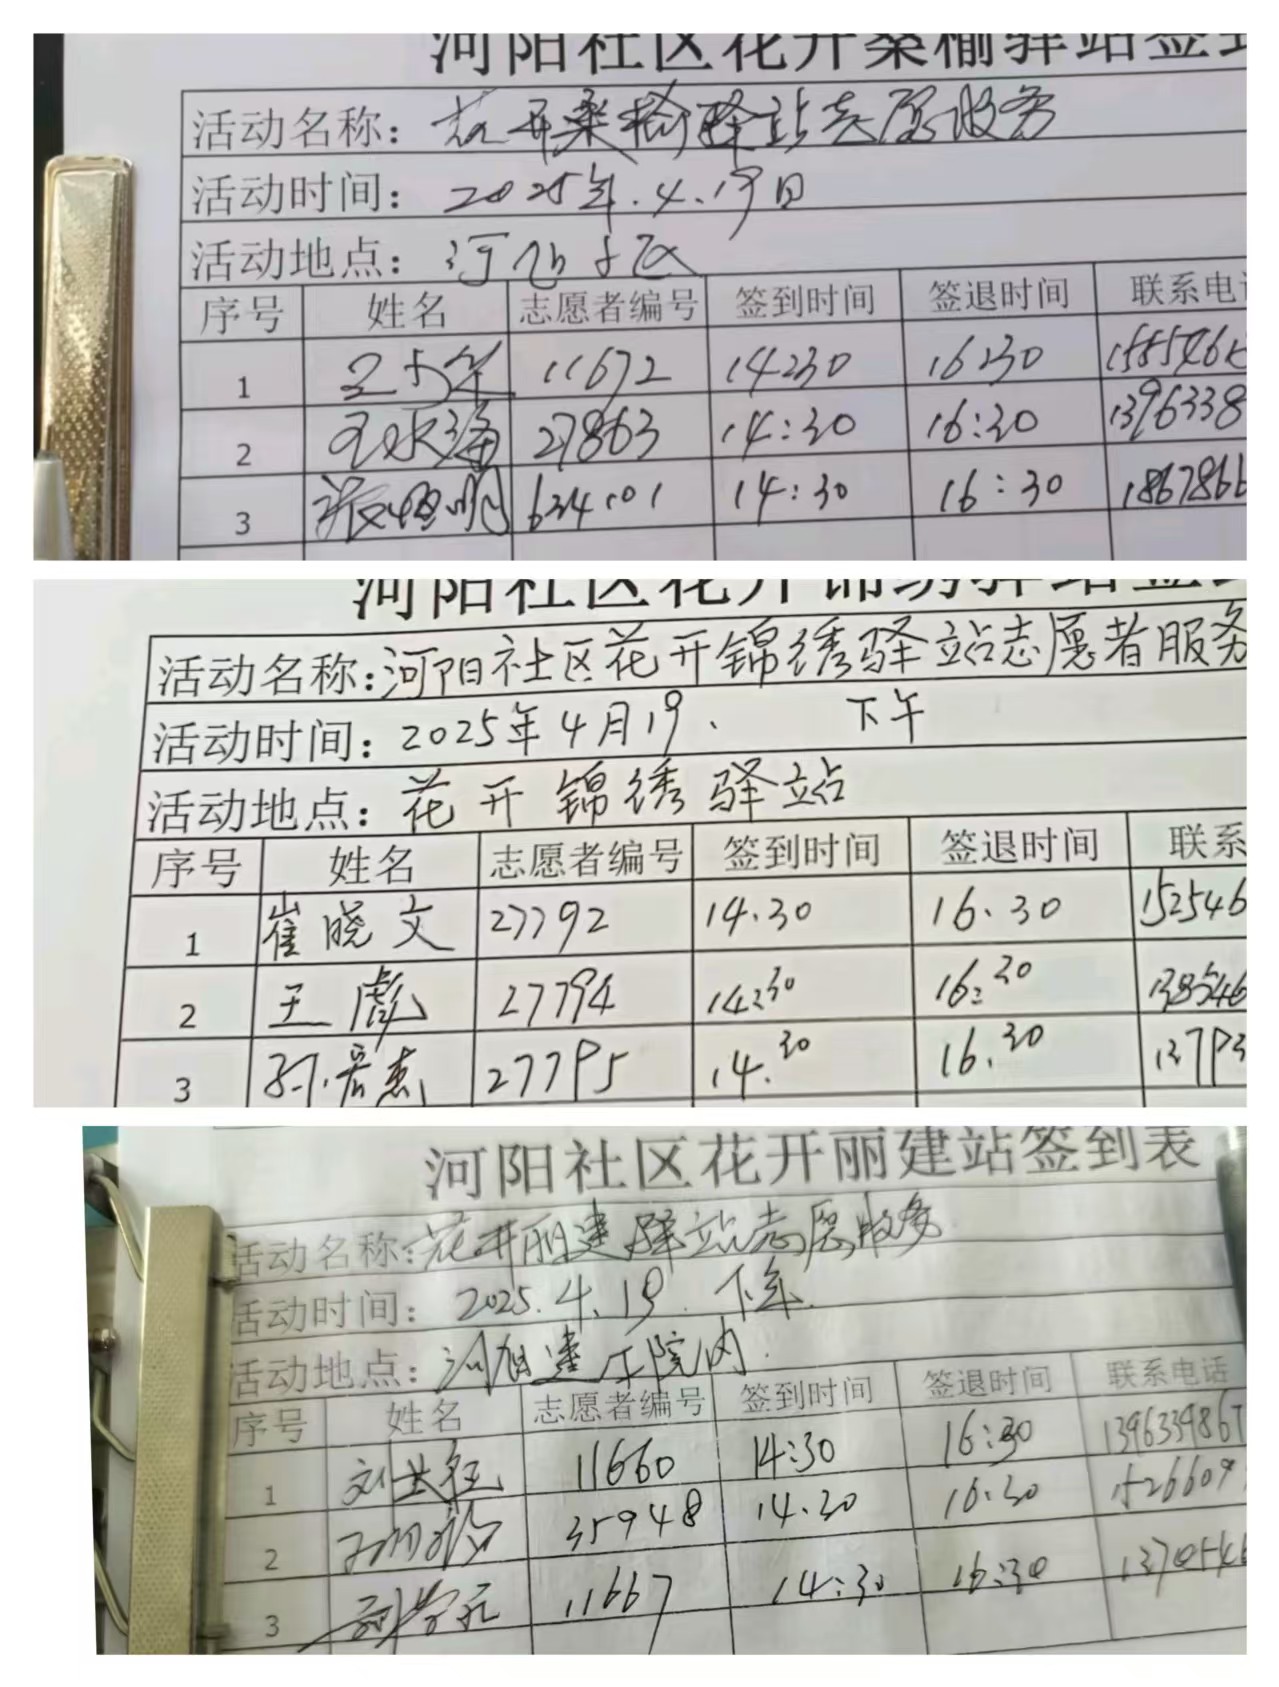 河阳社区花开桑榆驿站签到
活动名称：花开桑榆驿站志愿服务
活动时间：2025年.4.19日
活动地点：河
序号 姓名 志愿者编号 签到时间 签退时间 联系电话
1 11672 14:30 16:30 1585462
2 王永海 27863 14:30 16:30 1396338
3 张 明 634101 14:30 16:30 1867866
河阳社区花开锦绣驿站签到
活动名称：河阳社区花开锦绣驿站志愿者服务
活动时间：2025年4月19、 下午
活动地点：花开锦绣驿站
序号 姓名 志愿者编号 签到时间 签退时间 联系
1 崔晓文 27792 14.30 16.30 152546
2 王彪 27794 14:30 16:30 138546
3 孙宏杰 27795 14.30 16.30 13793
河阳社区花开丽建站签到表
活动名称：花开丽建驿站志愿服务
活动时间：2025.4.19.下午.
活动地点：河阳建 院内.
序号 姓名 志愿者编号 签到时间 签退时间 联系电话
1 刘 11660 14:30 16:30 1396339867
2 35948 14.30 16.30 1526609
3 11667 14:30 16:30 1370546